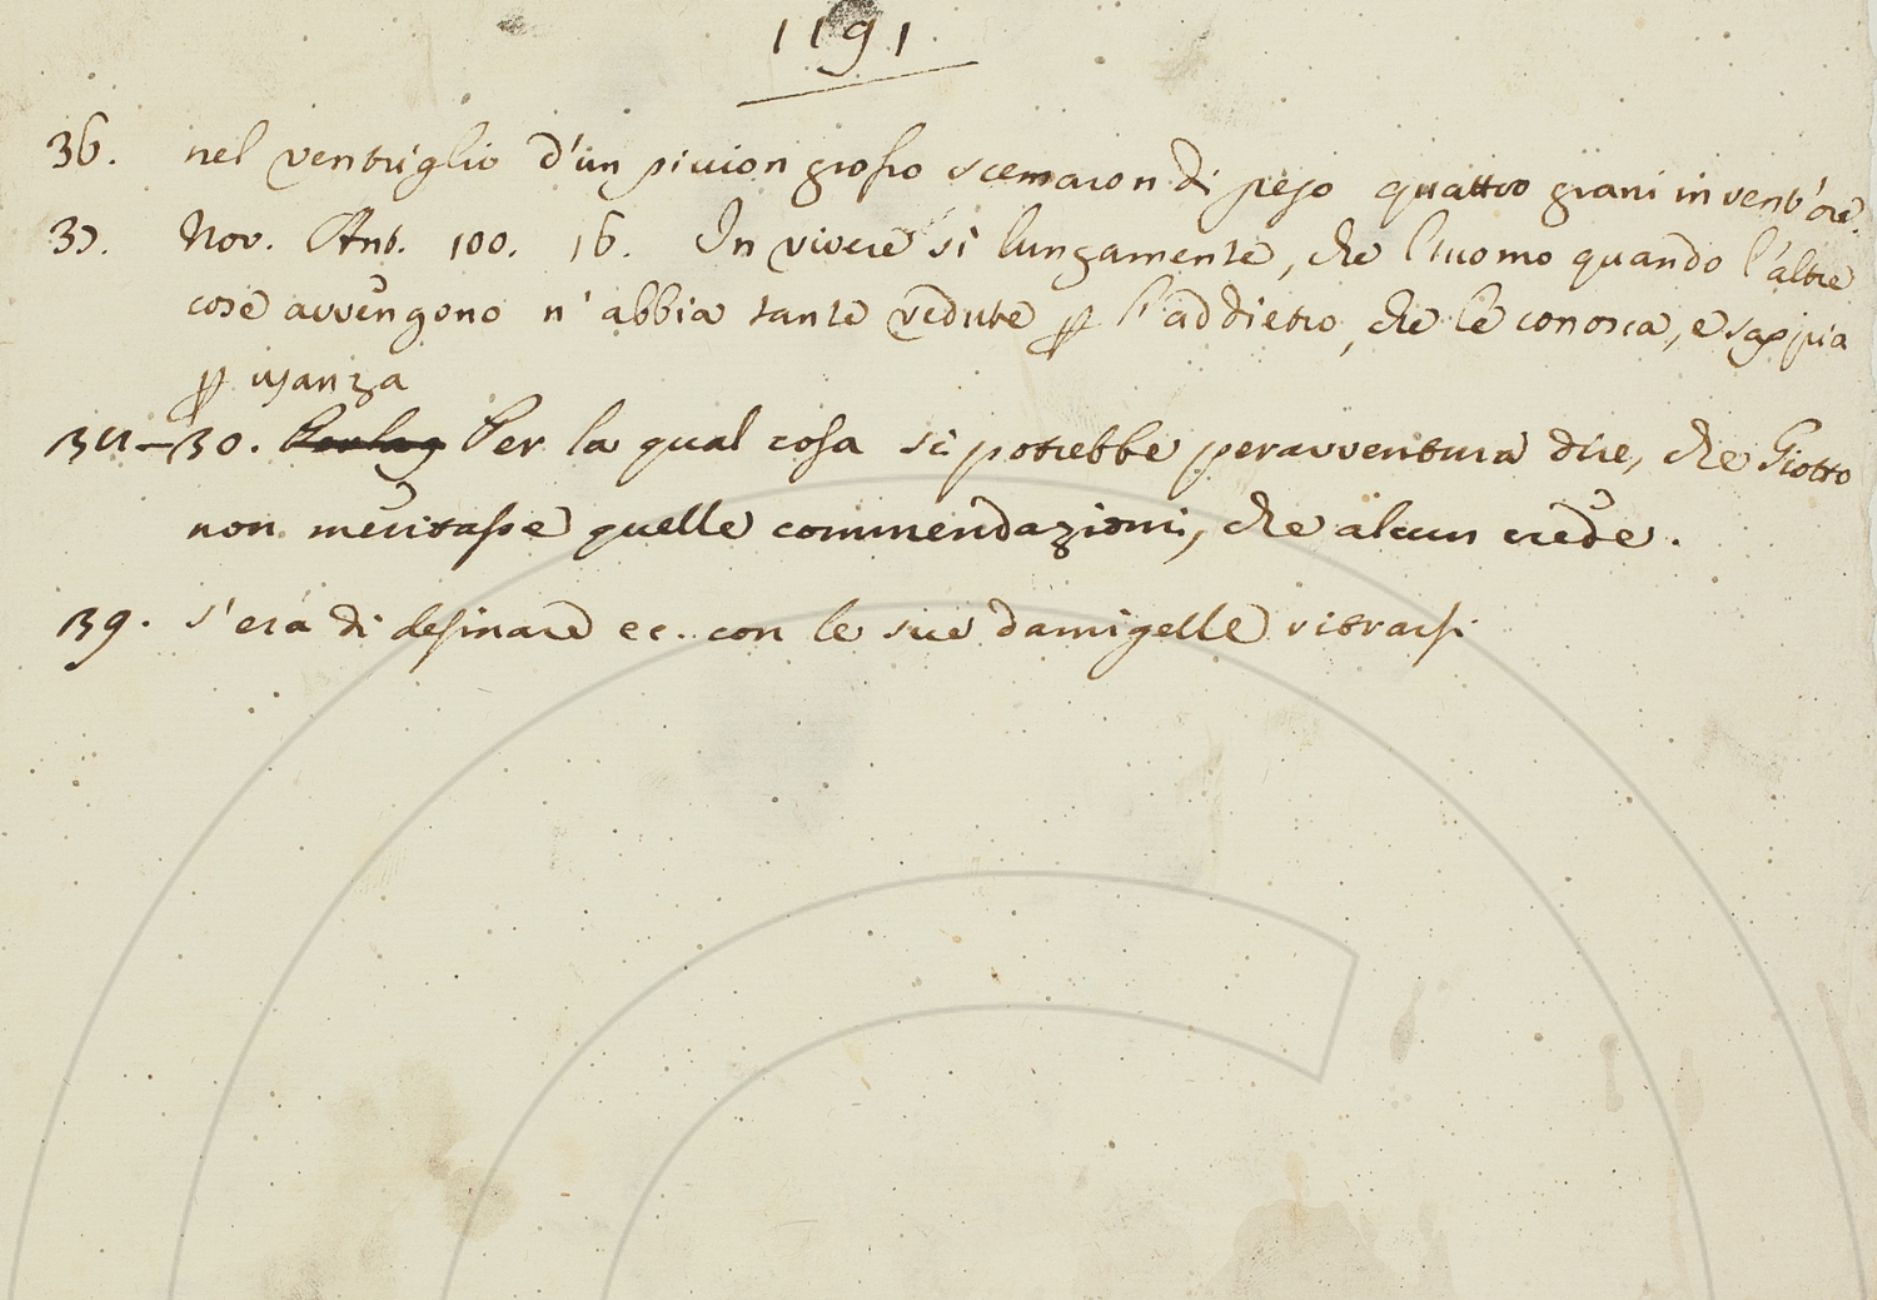 1191
36. nel ventriglio d'un piccion grosso scemaron di peso quattro grani in vent'ore.
37. Nov. Ant. 100. 16. In vivere sì lungamente, che l'uomo quando l'altre
cose avvengono n'abbia tante vedute ꝑ l'addietro, che le conosca, e sappia
ꝑ usanza
Per la qual cosa si potrebbe peravventura dire, che Giotto
non meritasse quelle commendazioni, che alcun crede.
39. s'era di desinare ec. con le sue damigelle ritrarsi